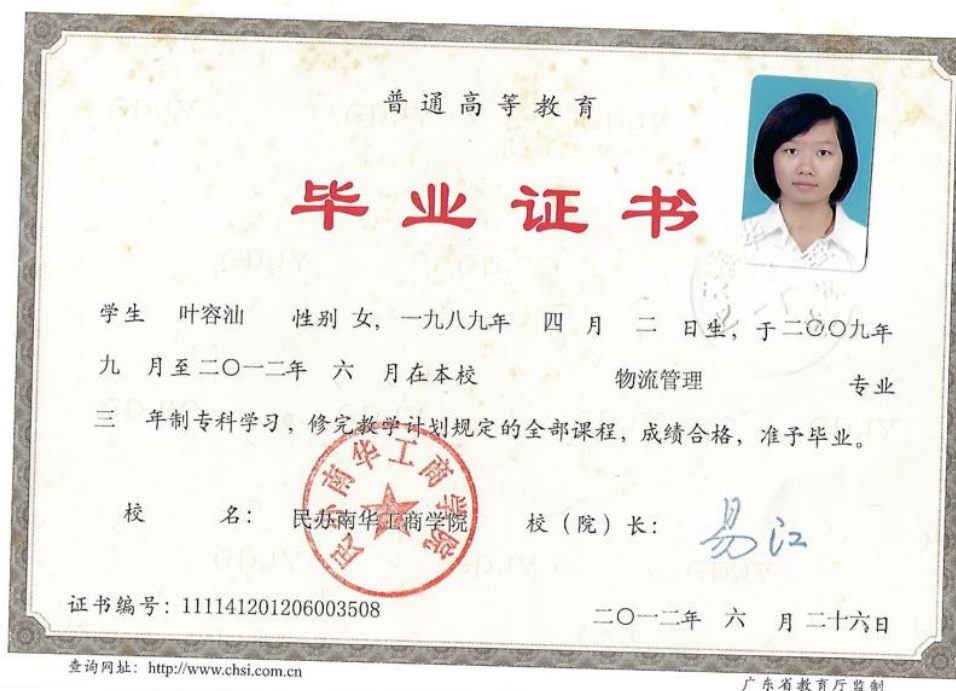 普通高等教育
毕业证书
学生 叶容汕 性别 女，一九八九年 四 月 二 日生，于二〇〇九年
九 月至二〇一二年 六 月在本校 物流管理 专业
三 年制专科学习，修完教学计划规定的全部课程，成绩合格，准予毕业。
民办南华工商学院
校 名： 民办南华工商学院 校（院）长： 易江
证书编号：111141201206003508 二〇一二年 六 月 二十六日
查询网址：http://www.chsi.com.cn
广东省教育厅监制